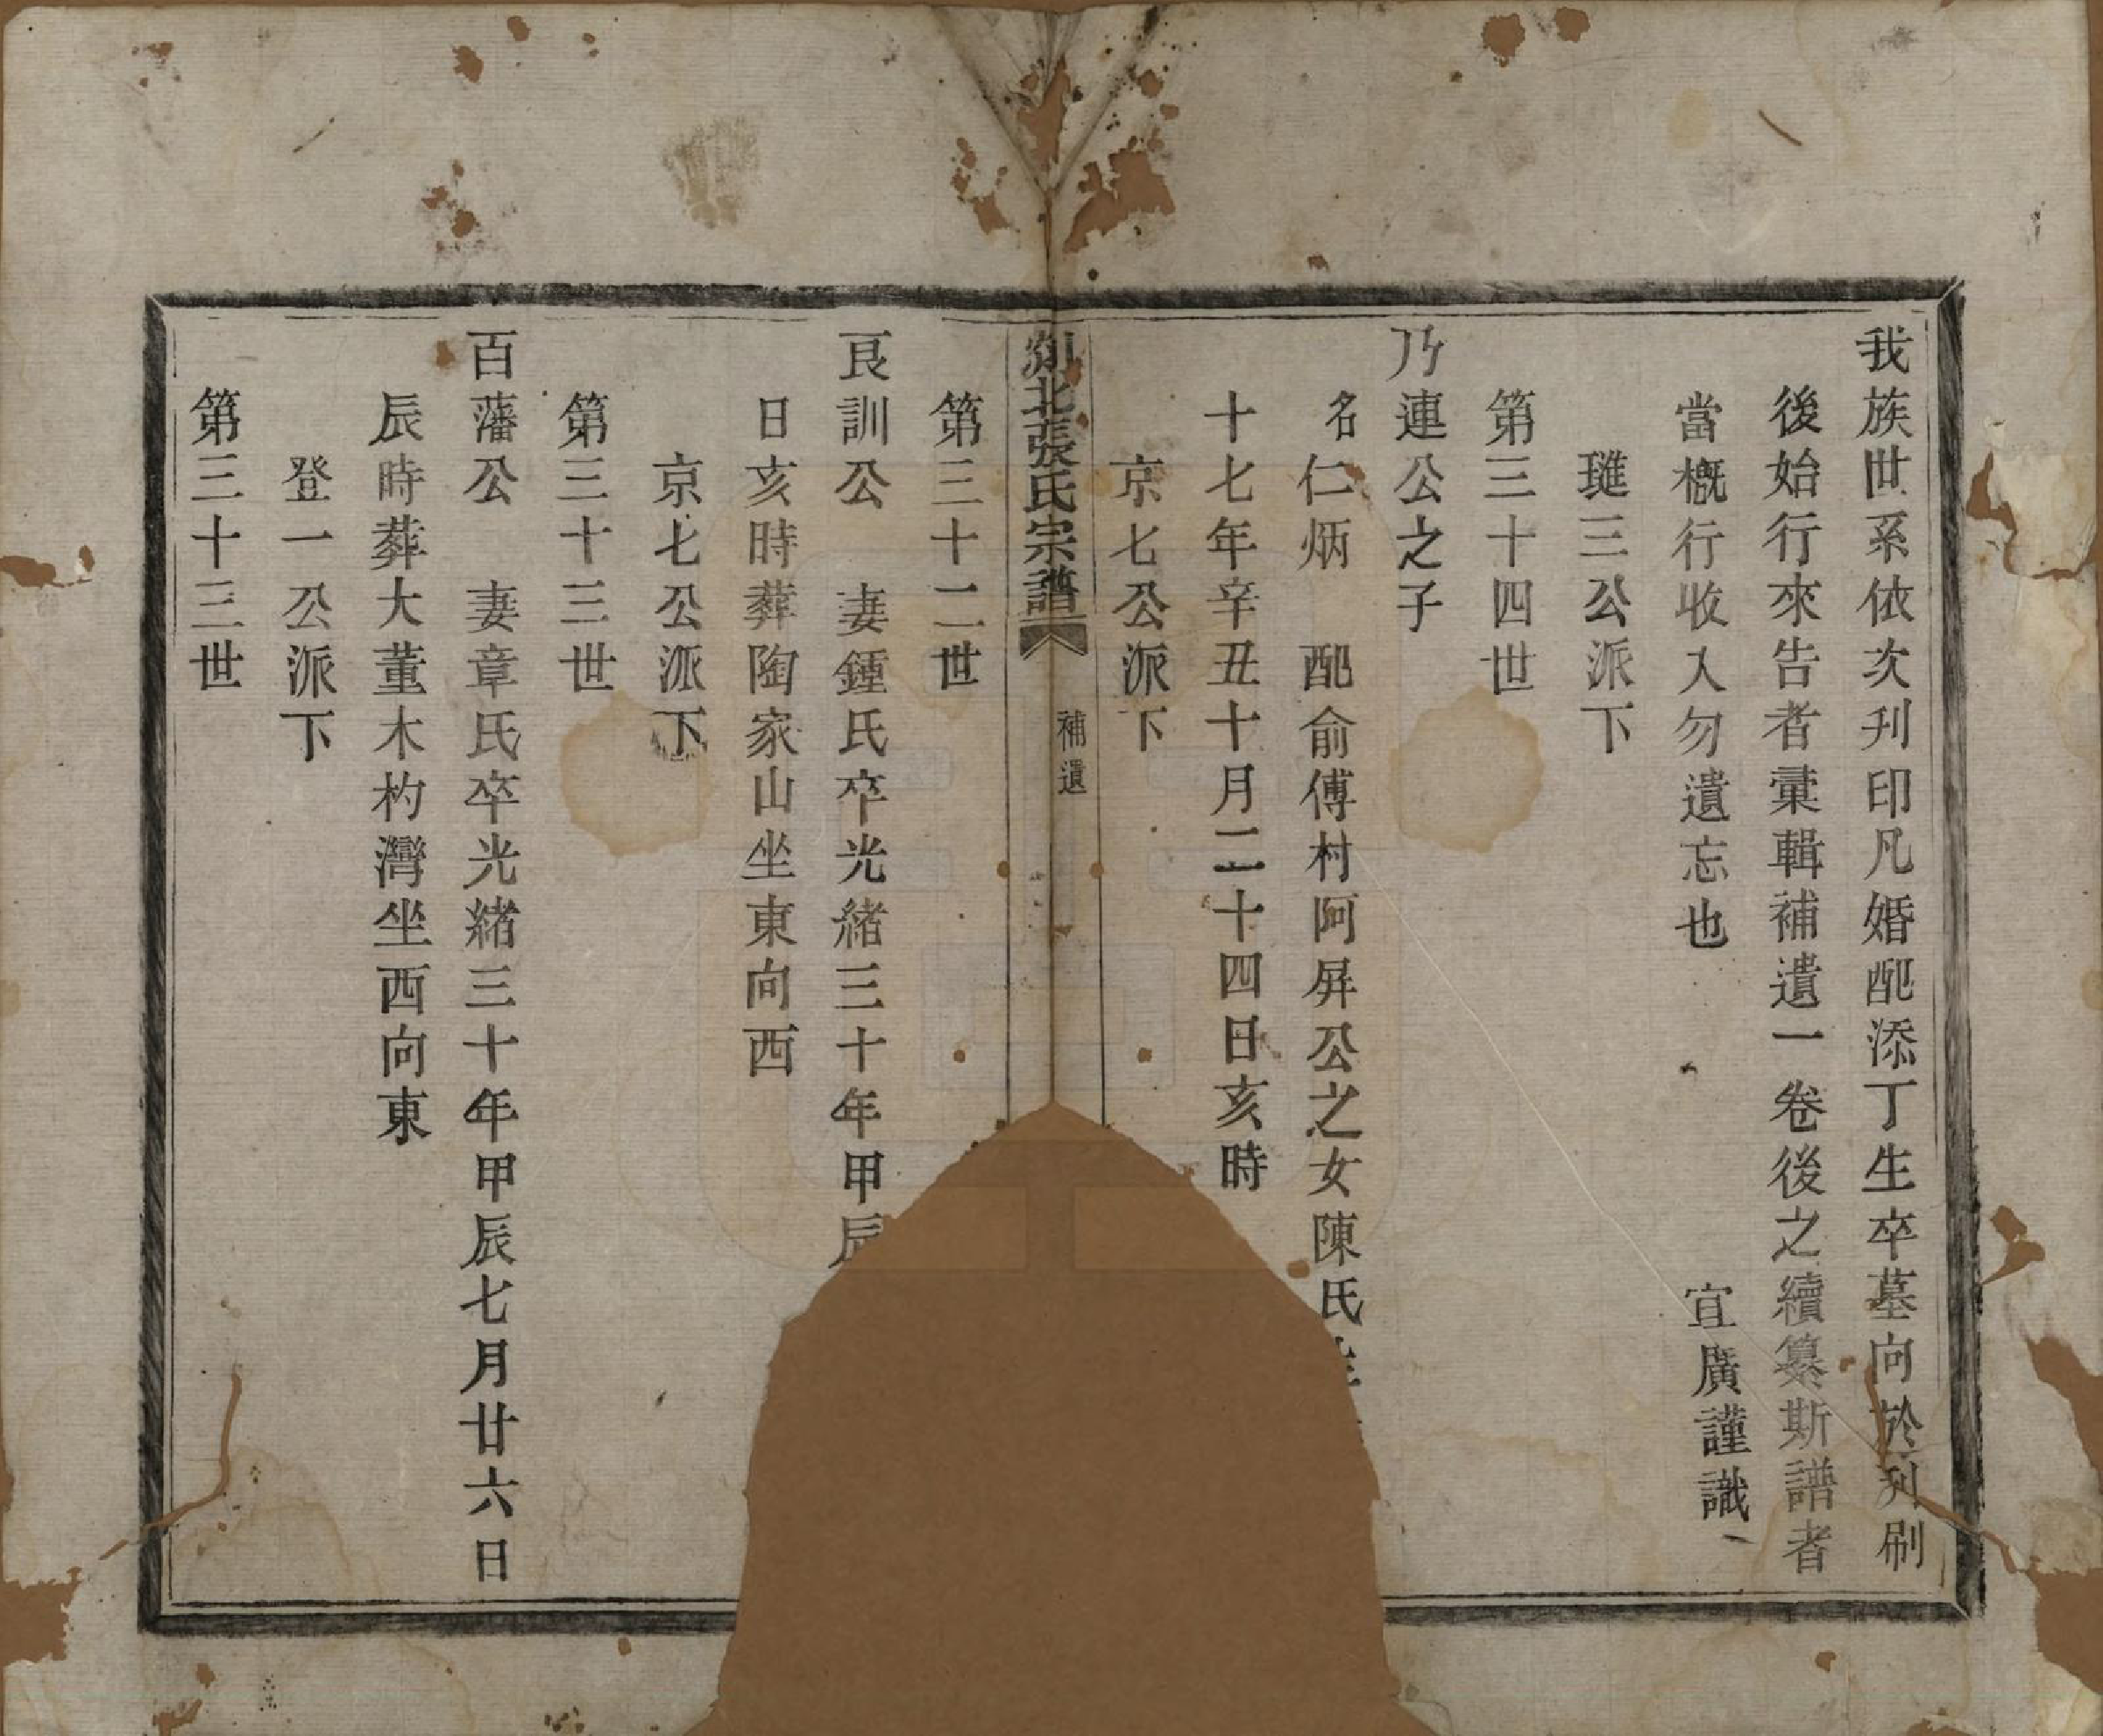 我族世系依次刋印凡婚配添丁生卒墓向於刋刷
後始行來告者彙輯補遺一卷後之續纂斯譜者
當槪行收入勿遺忘也 宜廣謹識
璡三公派下
第三十四世
乃連公之子
名仁炳 配俞傅村阿屏公之女陳氏
十七年辛丑十月二十四日亥時
京七公派下
剡北張氏宗譜 補遺
第三十二世
良訓公 妻鍾氏卒光緒三十年甲辰
日亥時葬陶家山坐東向西
京七公派下
第三十三世
百藩公 妻章氏卒光緒三十年甲辰七月廿六日
辰時葬大董木杓灣坐西向東
登一公派下
第三十三世